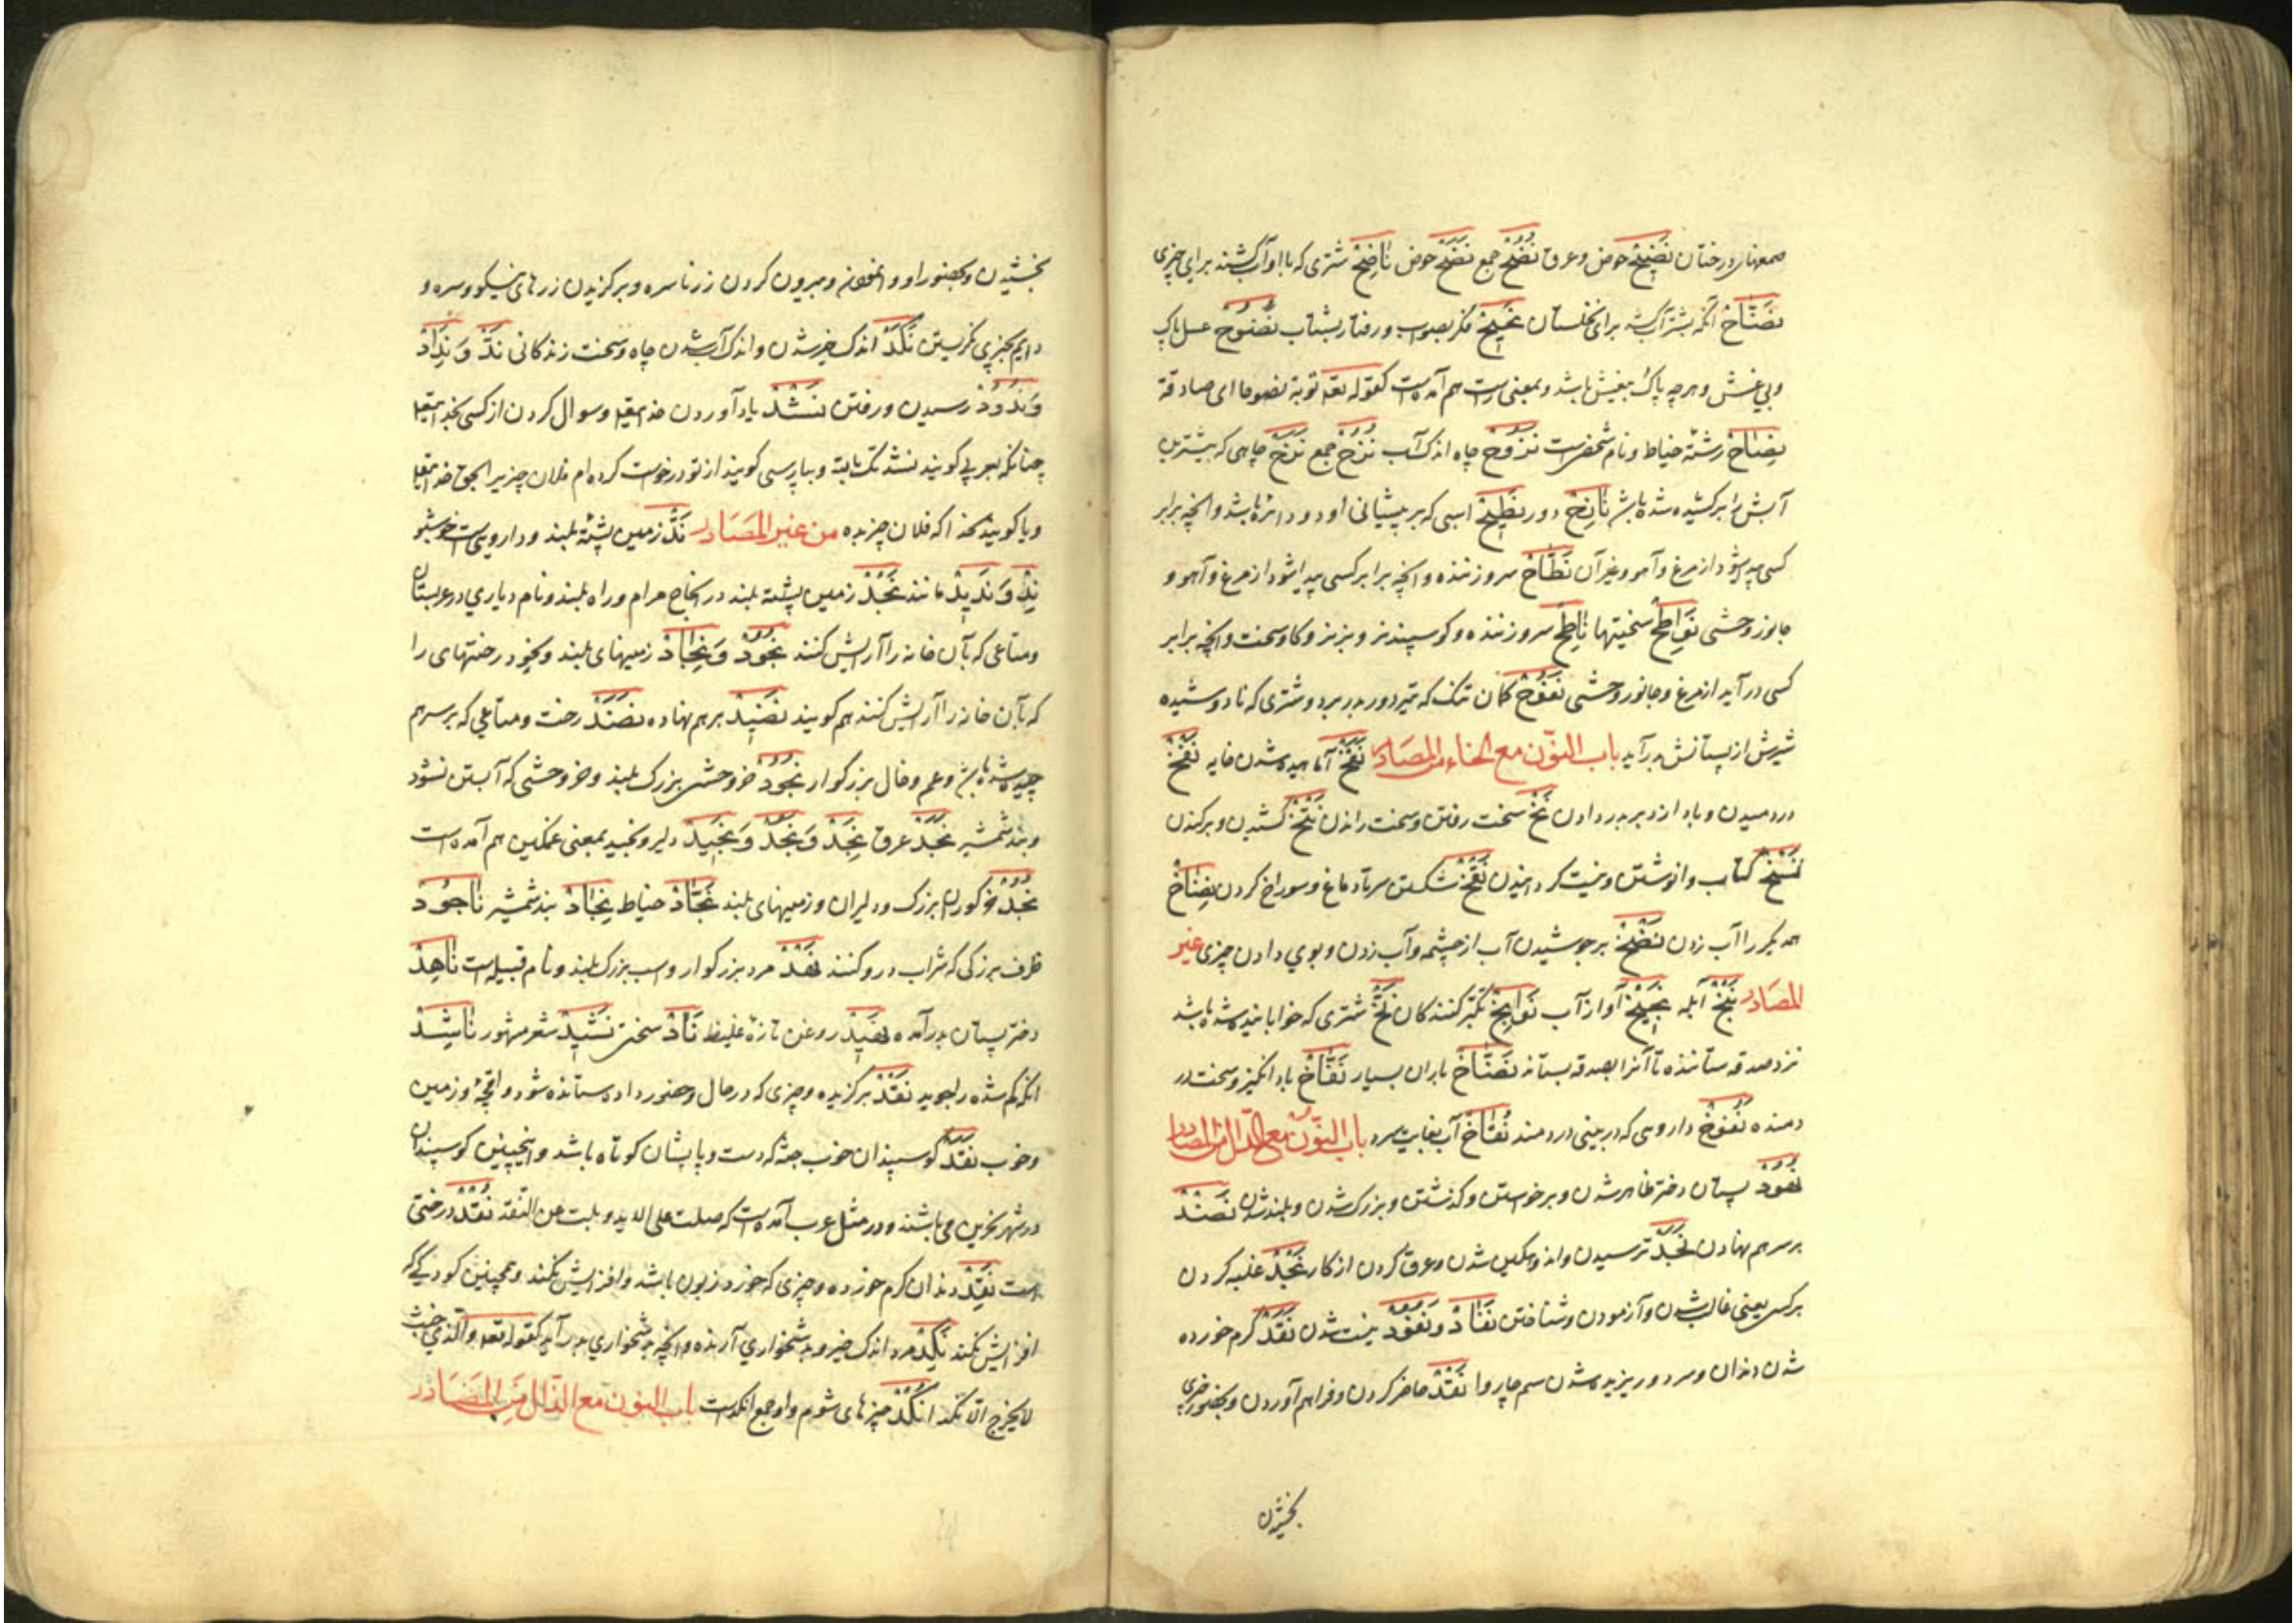 درختان نَضِیْحْ حوض و عرق نُضُحْ جمع نَضَحْ حوض نَاضِحْ شتری که باو آب کشند برای چیزی
نَضَّاحْ آنکه بشتر آب کشد برای نخلستان نَجِیْحْ فکر بصواب و رفتار بشتاب نَصُوْحْ عسل پاک
و بی غش و هرچه پاک بیغش باشد و بمعنی راست هم آمده است کقوله تعه توبة نصوحا ای صادقة
نِصَاحْ رشتهٔ خیاط و نام شخصی است نَزُوْحْ چاه اندک آب نُزُحْ جمع نَزَحْ چاهی که بیشترین
آبش را برکشیده شده باشد نَازِحْ دور نَطِیْحْ اسپی که بر پیشانی او دو دائره باشد و آنچه برابر
کسی پیدا شود از مرغ و آهو و غیر آن نَطَّاحْ سرو زننده و آنچه برابر کسی پیدا شود از مرغ و آهو و
جانور وحشی نَوَاطِحْ سختیها نَاطِحْ سرو زننده و کوسپند نر و بز نر و کاو سخت و آنچه برابر
کسی در آید از مرغ و جانور وحشی نَفُوْحْ کمان تنک که تیر دور بدر برد و شتری که نادوشیده
شیرش از پستانش بدر آید باب النّون مع الخاء من المصادر نَفَخْ آماسیده شدن خایه نَفْخْ
دردمیدن و باد از دبر بدر دادن نَخّْ سخت رفتن و سخت راندن نَتْخْ کشیدن و برکندن
نَسْخْ کتاب وانوشتن و نیست کردانیدن نَقْخْ شکستن سر تا دماغ و سوراخ کردن نِضَاخْ
همدیکر را آب زدن نَضْخْ برجوشیدن آب از چشمه و آب زدن و بوی دادن چیزی غیر
المصادر نَبَخْ آبله نَجِیْخْ آواز آب نَوَابِخْ تکبر کنندکان نَخّْ شتری که خوابانیده شده باشد
نزد صدقه ستاننده تا آنرا بصدقه بستاند نَضَّاخْ باران بسیار نَفَّاخْ باد انکیز و سخت در
دمنده نَفُوْخْ داروی که در بینی در دمند نُقَاخْ آب بغایت سرد باب النّون مع الدّال من المصادر
نُهُوْدْ پستان دختر ظاهر شدن و برخواستن و کذشتن و بزرک شدن و بلند شدن نَضْدْ
بر سر هم نهادن نَجَدْ ترسیدن و اندوهکین شدن و عرق کردن از کار نَجْدْ غلبه کردن
بر کسی یعنی غالب شدن و آزمودن و شتافتن نَفَادْ وَ نُفُوْدْ نیست شدن نَقَدْ کرم خورده
شدن دندان و سر و ریزیده شدن سم چاروا نَقْدْ حاضر کردن و فراهم آوردن و بحضور چیزی
بخشیدن
بخشیدن و بحضور او و بیرون کردن زر ناسره و برکزیدن زرهای نیکو و سره و
دایم بچیزی نکریستن نَکَدْ اندک خیر شدن و اندک آب شدن چاه و سخت زندکانی نَدّْ وَ نِدَادْ
وَ نُدُوْدْ رمیدن و رفتن نَشْدْ یاد آوردن خدایتعالی و سوال کردن از کسی بخدایتعالی
چنانکه بعربی کویند نشدتک بالله و بپارسی کویند از تو درخواست کرده ام فلان چیز بحق خدایتعالی
و یا کویند بخدا که فلان چیز بده من غیر المصادر نَدّْ زمین پشتهٔ بلند و داروی است خوشبو
نِدّْ وَ نَدِیْدْ مانند نَجْدْ زمین پشته بلند در و راه بلند و نام دیاری در عربستان
و متاعی که بآن خانه را آرایش کنند نُجُوْدْ وَ نِجَادْ زمینهای بلند و نجود رختهای را
که بآن خانه را آرایش کنند هم کویند نَضِیْدْ بر هم نهاده نَضَدْ رخت و متاعی که بر سر هم
چیده شده باشد و عم و خال بزرکوار نَجُوْدْ خر وحشی بزرک بلند و خر وحشی که آبستن نشود
و بند شمشیر نَجَدْ عرق نَجِدْ وَ نَجُدْ وَ نَجِیْدْ دلیر و نجید بمعنی غمکین هم آمده است
نُجُدْ بزرک و دلیران و زمینهای بلند نَجَّادْ خیاط نِجَادْ بند شمشیر نَاجُوْدْ
ظرف بزرکی که شراب درو کنند نَهْدْ مرد بزرکوار و اسب بزرک بلند و نام قبیله است نَاهِدْ
دختر پستان بدر آمده نَهِیْدْ روغن تازه غلیظ نَادْ سختی نَشِیْدْ شعر مشهور نَاشِدْ
آنکه کم شده را بجوید نَقْدْ برکزیده و چیزی که در حال و حضور داده و ستانده شود و اقچهٔ و زمین
و خوب نَقَدْ کوسپندان خوب جثه که دست و پایشان کوتاه باشد و اینچنین کوسپندان
در شهر بحرین می باشند و در مثل عرب آمده است که صلت علی الاسد و بلت عن النقد نُقُدْ درختی
است نَقِدْ دندان کرم خورده و چیزی که خورد زبون باشد و افزایش نکند و همچنین کودکی که
افزایش نکند نَکِدْ مرد اندک خیر و بدشخواری آرنده و آنچه بدشخواری بدر آید کقوله تعه والذی خبث
لا یخرج الّا نکدا اَنْکَدْ چیزهای شوم و او جمع انکد است باب النون مع الذّال من المصادر